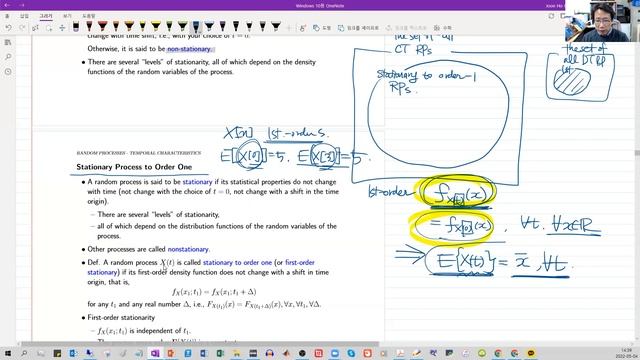 Windows 10용 OneNote
change with time shift, i.e., with your choice of t = 0.
Otherwise, it is said to be non-stationary.
• There are several "levels" of stationarity, all of which depend on the density
functions of the random variables of the process.
the set of all
CT RPs
Stationary to order-1
RPs.
the set of
all DT RP
X[n] 1st-order S.
E[X[0]]=5. E[X[3]]=5.
RANDOM PROCESSES - TEMPORAL CHARACTERISTICS
Stationary Process to Order One
• A random process is said to be stationary if its statistical properties do not change
with time (not change with the choice of t = 0, not change with a shift in the time
origin).
– There are several "levels" of stationarity,
– all of which depend on the distribution functions of the random variables of the
process.
• Other processes are called nonstationary.
• Def. A random process X(t) is called stationary to order one (or first-order
stationary) if its first-order density function does not change with a shift in time
origin, that is,
f_X(x; t₁) = f_X(x; t₁ + Δ)
for any t₁ and any real number Δ, i.e., F_X(t₁)(x) = F_X(t₁+Δ)(x), ∀x, ∀t₁, ∀Δ.
• First-order stationarity
– f_X(x; t₁) is independent of t₁.
1st-order f_X[t](x)
= f_X[0](x), ∀t. ∀x∈ℝ
⇒ E{X(t)} = x̄, ∀t.
14:39
2022-05-04